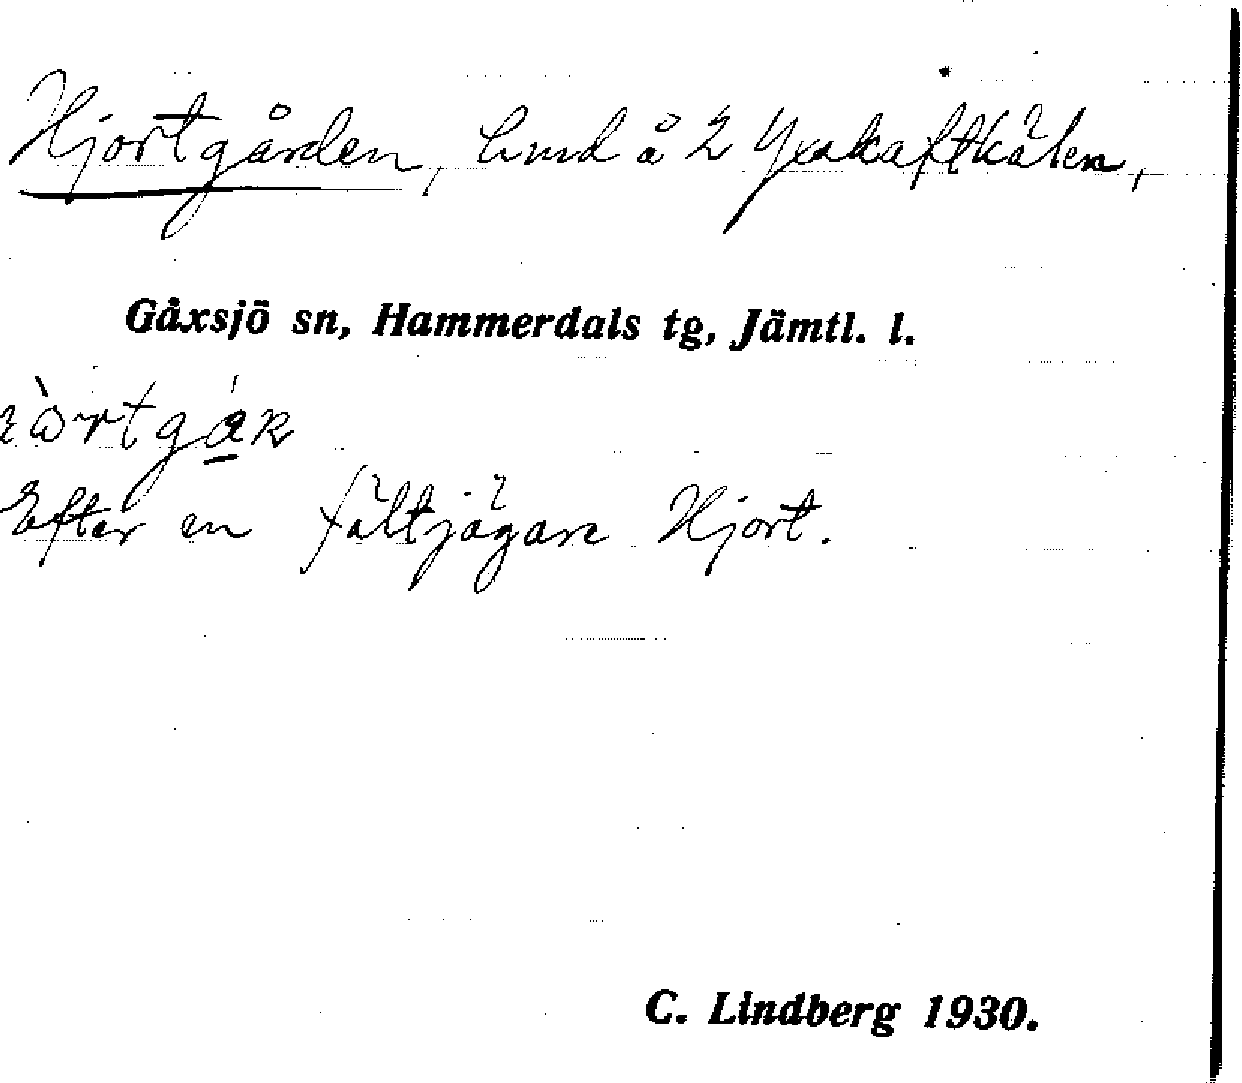 Hjortgården, hmd å 2 Yxskaftkälen,
Gåxsjö sn, Hammerdals tg, Jämtl. l.
Efter en fältjägare Hjort.
C. Lindberg 1930.